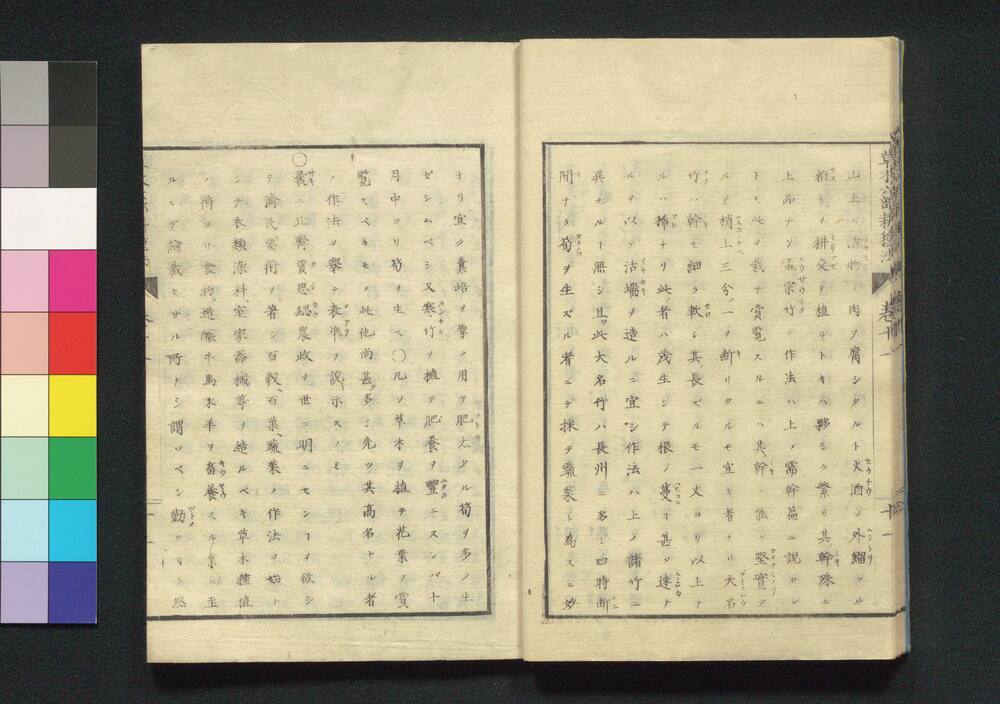 山土ニ沽物 肉ヲ腐シタルト火酒ノ外餾ロル
粕トヲ耕交テ植ルトキハ夥シク繁リ其幹殊ニ
上品ナリ孟宗竹ノ作法ハ上ノ需幹篇ニ説ロシ
トモ此ヲ栽テ賞覧スルニハ其幹ノ能ク堅實タ
ルヲ梢上三分ノ一ヲ断リタルモ宜キ者ナリ大名
竹ハ幹モ細ク軟シ其長ズルモ一丈ヨリ以上ナ
ルハ稀ナリ此者ハ茂生シテ根ノ蔓リ甚ロ速ナ
ルヲ以テ活墻ヲ造ルニ宜シ作法ハ上ノ諸竹ニ
異ナルヿ無シ且此大名竹ハ長州ニ多シ四時断
間ナク筍ヲ生ズル者ニテ採テ蔬菜ト為スニ妙
ナリ宜ク糞培ヲ厚ク用テ肥太タル筍ヲ多ク生
ゼシムベシ又寒竹ヲ植テ肥養ヲ豐ニスレバ十
月中ヨリ筍ヲ生ズ〇凡ソ草木ヲ植テ花葉ヲ賞
覧スベキモノ此他尚甚多シ先ツ其高名ナル者
ノ作法ヲ擧テ表準ヲ説示スノミ
〇曩ニ北齊賈思勰農政ヲ世ニ明ニセンヿヲ欲シ
テ濟民要術ヲ著シ百穀、百菓、蔬菜ノ作法ヲ始ト
シテ衣類、染料、室家器械等ヲ造ルベキ草木種植
ノ術ヨリ食物、造釀牛馬豕羊ヲ畜養スル業ニ至
ルマデ論載セザル所ナシ謂ツベシ勤タリト然